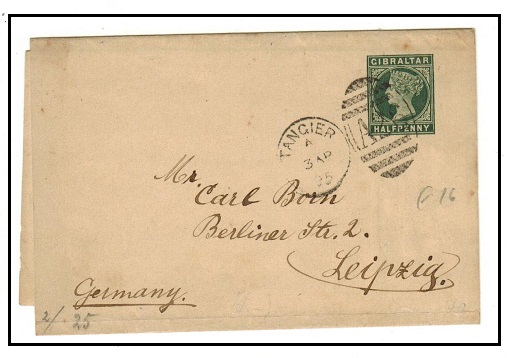 GIBRALTAR
HALFPENNY
TANGIER
A
3 AP
Mr.
Carl Born
Berliner Str. 2.
Leipzig.
Germany.
2/ 25